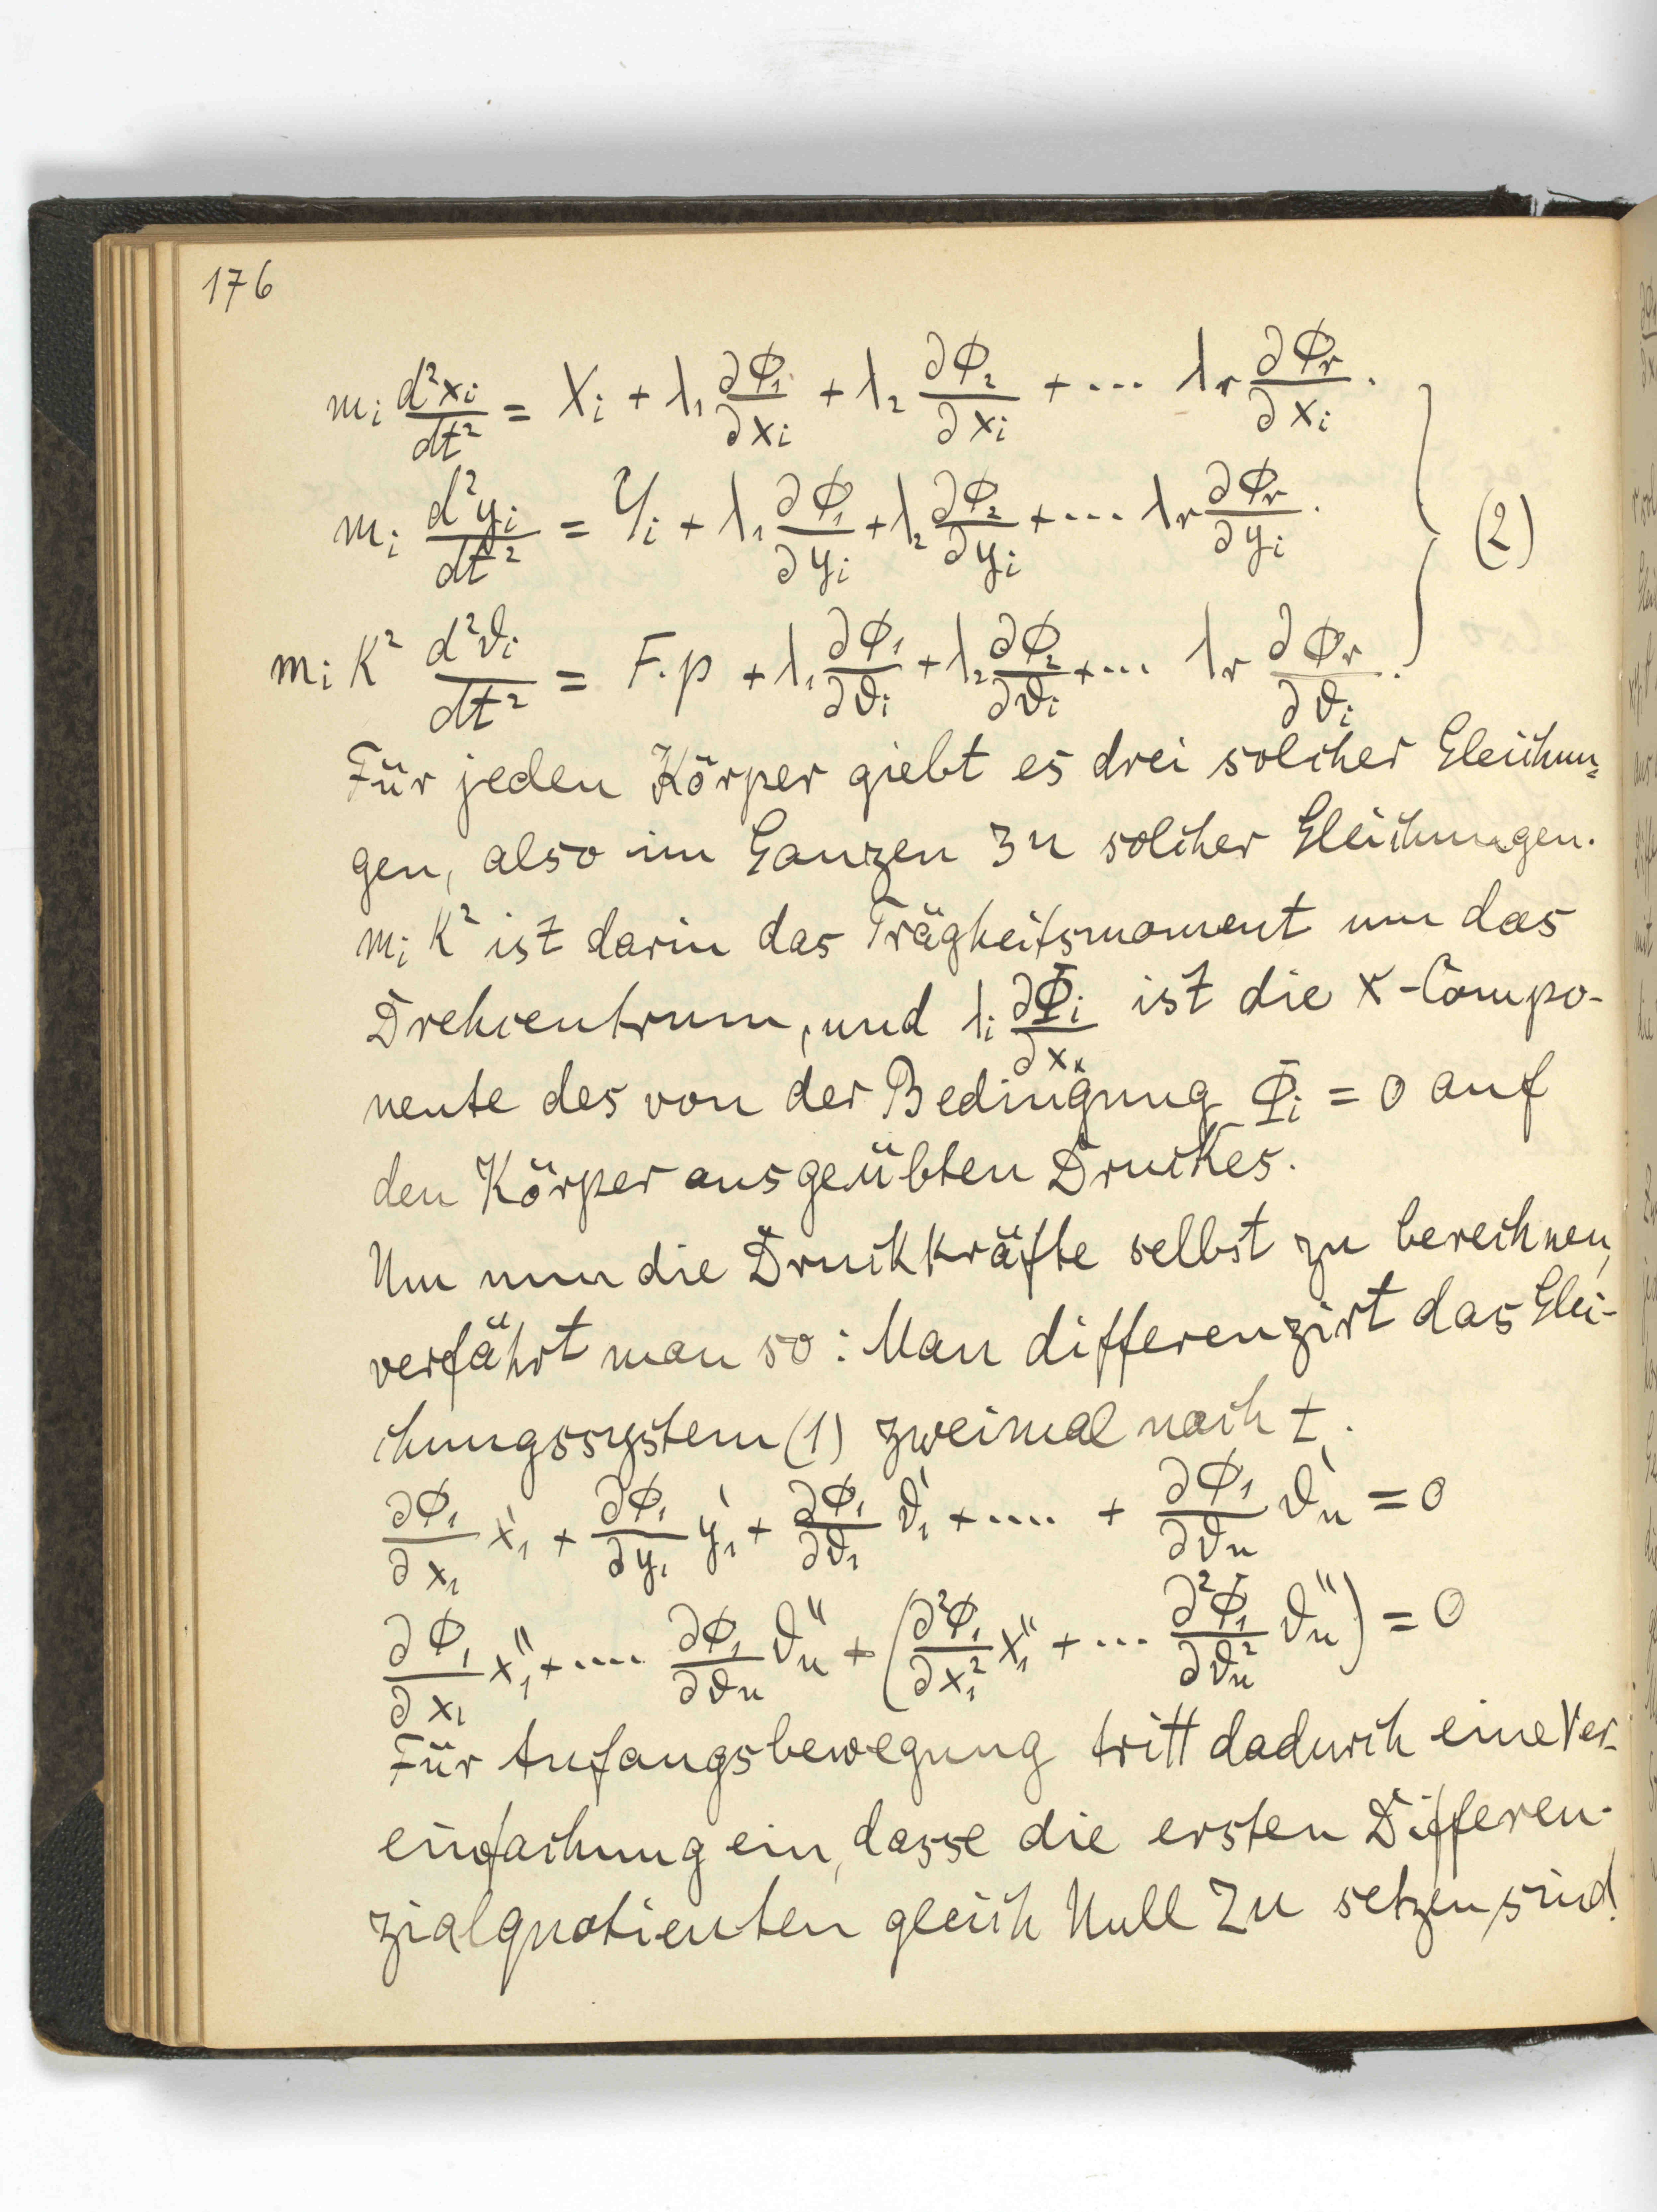 176
m_i d²x_i/dt² = X_i + λ_1 ∂Φ_1/∂x_i + λ_2 ∂Φ_2/∂x_i + ... λ_r ∂Φ_r/∂x_i .
m_i d²y_i/dt² = Y_i + λ_1 ∂Φ_1/∂y_i + λ_2 ∂Φ_2/∂y_i + ... λ_r ∂Φ_r/∂y_i . } (2)
m_i K² d²ϑ_i/dt² = F.p + λ_1 ∂Φ_1/∂ϑ_i + λ_2 ∂Φ_2/∂ϑ_i + ... λ_r ∂Φ_r/∂ϑ_i .
Für jeden Körper giebt es drei solcher Gleichun=
gen, also im Ganzen 3n solcher Gleichungen.
m_i K² ist darin das Trägheitsmoment um das
Drehcentrum, und λ_i ∂Φ_i/∂x_κ ist die x-Compo-
nente des von der Bedingung Φ_i = 0 auf
den Körper ausgeübten Druckes.
Um nun die Druckkräfte selbst zu berechnen,
verfährt man so: Man differenzirt das Glei-
chungssystem (1) zweimal nach t.
∂Φ_1/∂x_1 x_1' + ∂Φ_1/∂y_1 y_1' + ∂Φ_1/∂ϑ_1 ϑ_1' + .... + ∂Φ_1/∂ϑ_n ϑ_n' = 0
∂Φ_1/∂x_1 x_1'' + .... ∂Φ_1/∂ϑ_n ϑ_n'' + (∂²Φ_1/∂x_1² x_1'' + ... ∂²Φ_1/∂ϑ_n² ϑ_n'') = 0
Für Anfangsbewegung tritt dadurch eine Ver-
einfachung ein, dasse die ersten Differen-
zialquotienten gleich Null zu setzen sind.